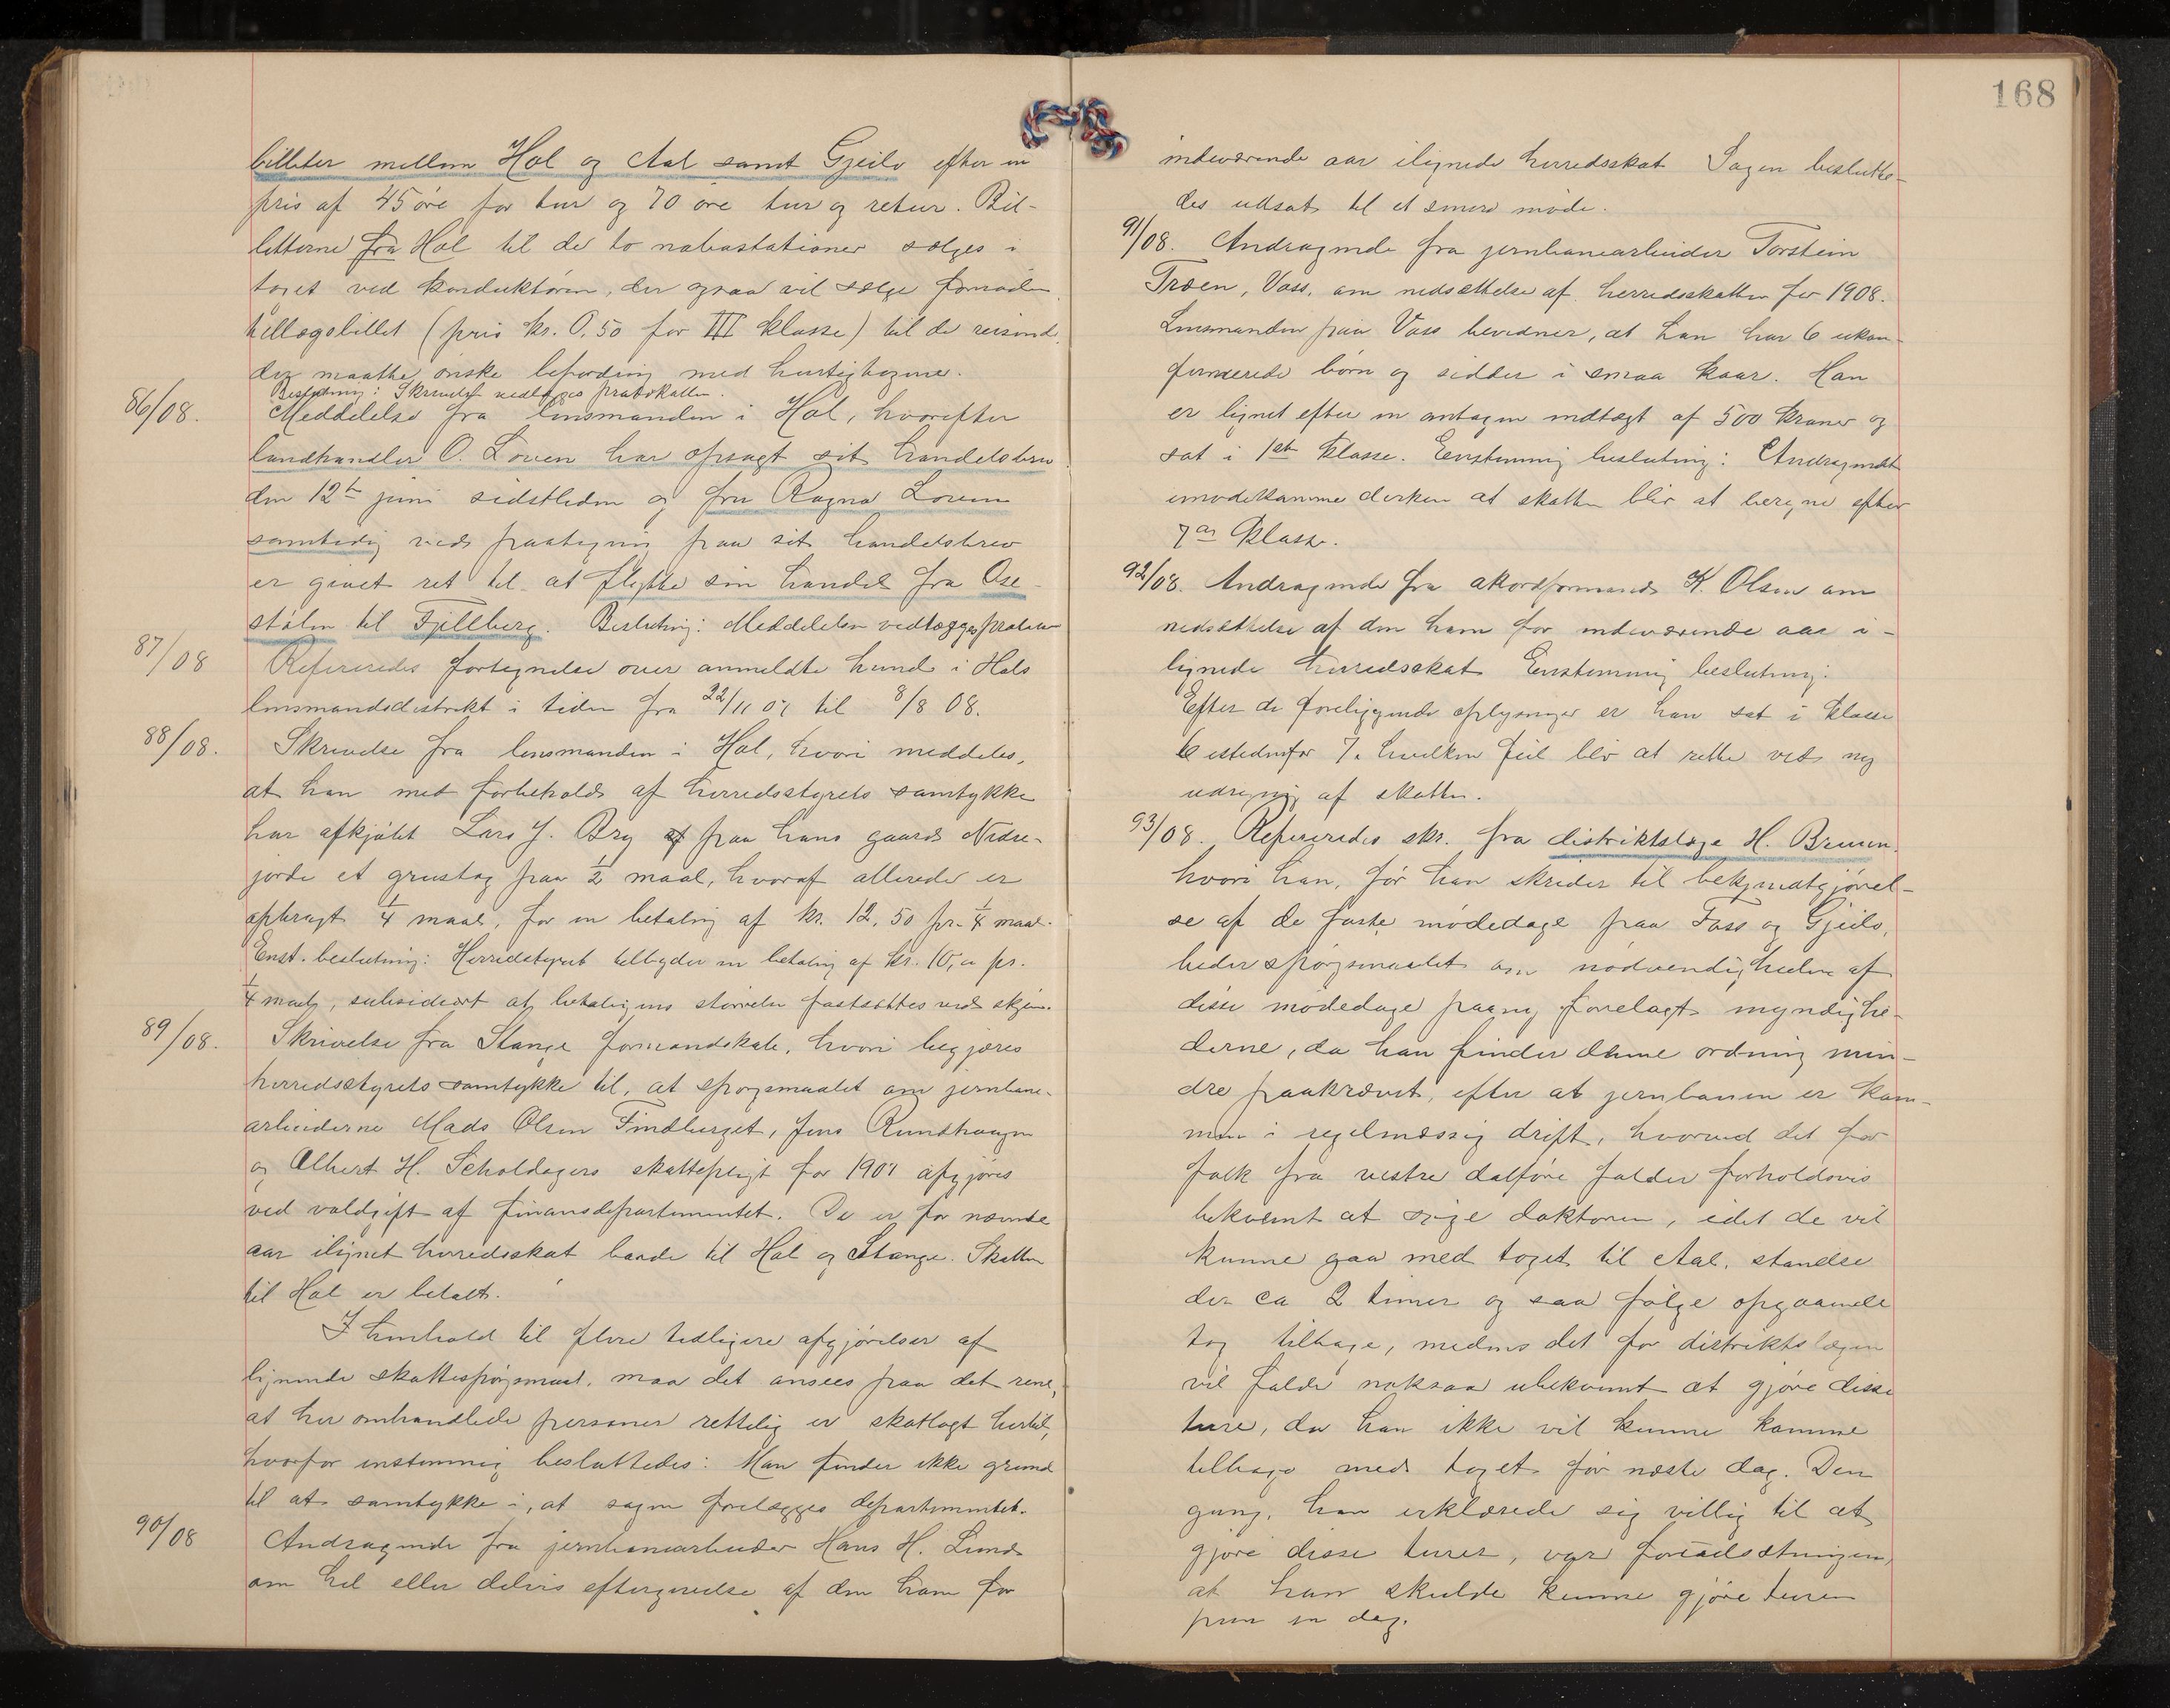 billeter mellem Hol og Aal samt Gjeilo efter en
pris af 45 øre for tur og 70 øre tur og retur. Bil-
letterne fra Hol til de to nabostationer sælges i
toget ved konduktøren, der ogsaa vil sælge fornøden
tillægsbillet (pris kr. 0.50 for III klasse) til de reisende,
der maatte ønske befordring med hurtigtogene.
Beslutning: Skrivelsen vedlægges protokollen.
86/08. Meddelelse fra lensmanden i Hol, hvorefter
landhandler O. Loven har opsagt sit handelsbrev
den 12te juni sidstleden og fru Ragna Loven
samtidig ved paategning paa sit handelsbrev
er givet ret til at flytte sin handel fra Ose-
stølen til Fjellberg. Beslutning: Meddelelsen vedlægges protok
87/08 Refereredes fortegnelse over anmeldte hunde i Hols
lensmandsdistrikt i tiden fra 22/11 07 til 8/8 08.
88/08. Skrivelse fra lensmanden i Hol, hvori meddeles,
at han med forbehold af herredsstyrets samtykke
har afkjøbt Lars J. Bry paa hans gaard Nedre-
jorde et grustag paa 1/2 maal, hvoraf allerede er
opbragt 1/4 maal, for en betaling af kr. 12,50 pr. 1/4 maal.
Enst. beslutning: Herredstyret tilbyder en betaling af kr. 10,00 pr.
1/4 maal, subsidiært at betalingens størrelse fastsættes ved skjøn.
89/08. Skrivelse fra Stange formandskab, hvori begjæres
herredsstyrets samtykke til, at spørgsmaalet om jernbane-
arbeiderne Mads Olsen Findberget, Jens Rundhaugen
og Albert H. Scholdagers skattepligt for 1907 afgjøres
ved voldgift af finansdepartementet. De er for nævnte
aar ilignet herredsskat baade til Hol og Stange. Skatten
til Hol er betalt.
I henhold til flere tidligere afgjørelser af
lignende skattespørgsmaal, maa det ansees paa det rene,
at her omhandlede personer rettelig er skatlagt hertil,
hvorfor enstemmig besluttedes: Man finder ikke grund
til at samtykke i, at sagen forelægges departementet.
90/08 Andragende fra jernbanearbeider Hans H. Lunde
om hel eller delvis eftergivelse af den ham for
168
indeværende aar ilignede herredsskat Sagen beslutte-
des udsat til et senere møde.
91/08. Andragende fra jernbanearbeider Torstein
Træen, Voss, om nedsættelse af herredsskatten for 1908.
Lensmanden paa Voss bevidner, at han har 6 ukon-
firmerede børn og sidder i smaa kaar. Han
er lignet efter en antagen indtægt af 500 kroner og
sat i 1ste klasse. Eenstemmig beslutning: Andragendet
imødekommes derhen at skatten blir at beregne efter
7de klasse.
92/08. Andragende fra akordformand K. Olsen om
nedsættelse af den ham for indeværende aar i-
lignede herredsskat Enstemmig beslutning:
Efter de foreliggende oplysninger er han sat i klasse
6 istedenfor 7, hvilken feil blir at rette ved ny
udregning af skatten.
93/08. Refereredes skr. fra distriktslæge H. Bruun.
hvori han, før han skrider til bekjendtgjørel-
se af de faste mødedage paa Foss og Gjeilo,
beder spørgsmaalet om nødvendigheden af
disse mødedage paany forelagt myndighe-
derne, da han finder denne ordning min-
dre paakrævet, efter at jernbanen er kom-
men i regelmæssig drift, hvorved det for
folk fra vestre dalføre falder forholdsvis
bekvemt at søge doktoren, idet de vil
kunne gaa med toget til Aal, standse
der ca 2 timer og saa følge opgaaende
tog tilbage, medens det for distriktslægen
vil falde noksaa ubekvemt at gjøre disse
ture, da han ikke vil kunne komme
tilbage med toget før næste dag. Den
gang, han erklærede sig villig til at
gjøre disse turer, var forudsætningen,
at han skulde kunne gjøre turen
paa en dag.